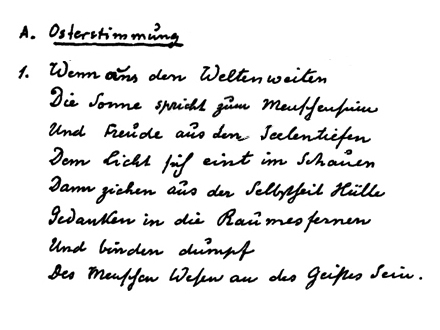 A. Osterstimmung
1. Wenn aus den Weltenweiten
Die Sonne spricht zum Menschensinn
Und Freude aus den Seelentiefen
Dem Licht sich eint im Schauen
Dann ziehen aus der Selbstheit Hülle
Gedanken in die Raumesfernen
Und binden dumpf
Des Menschen Wesen an des Geistes Sein.